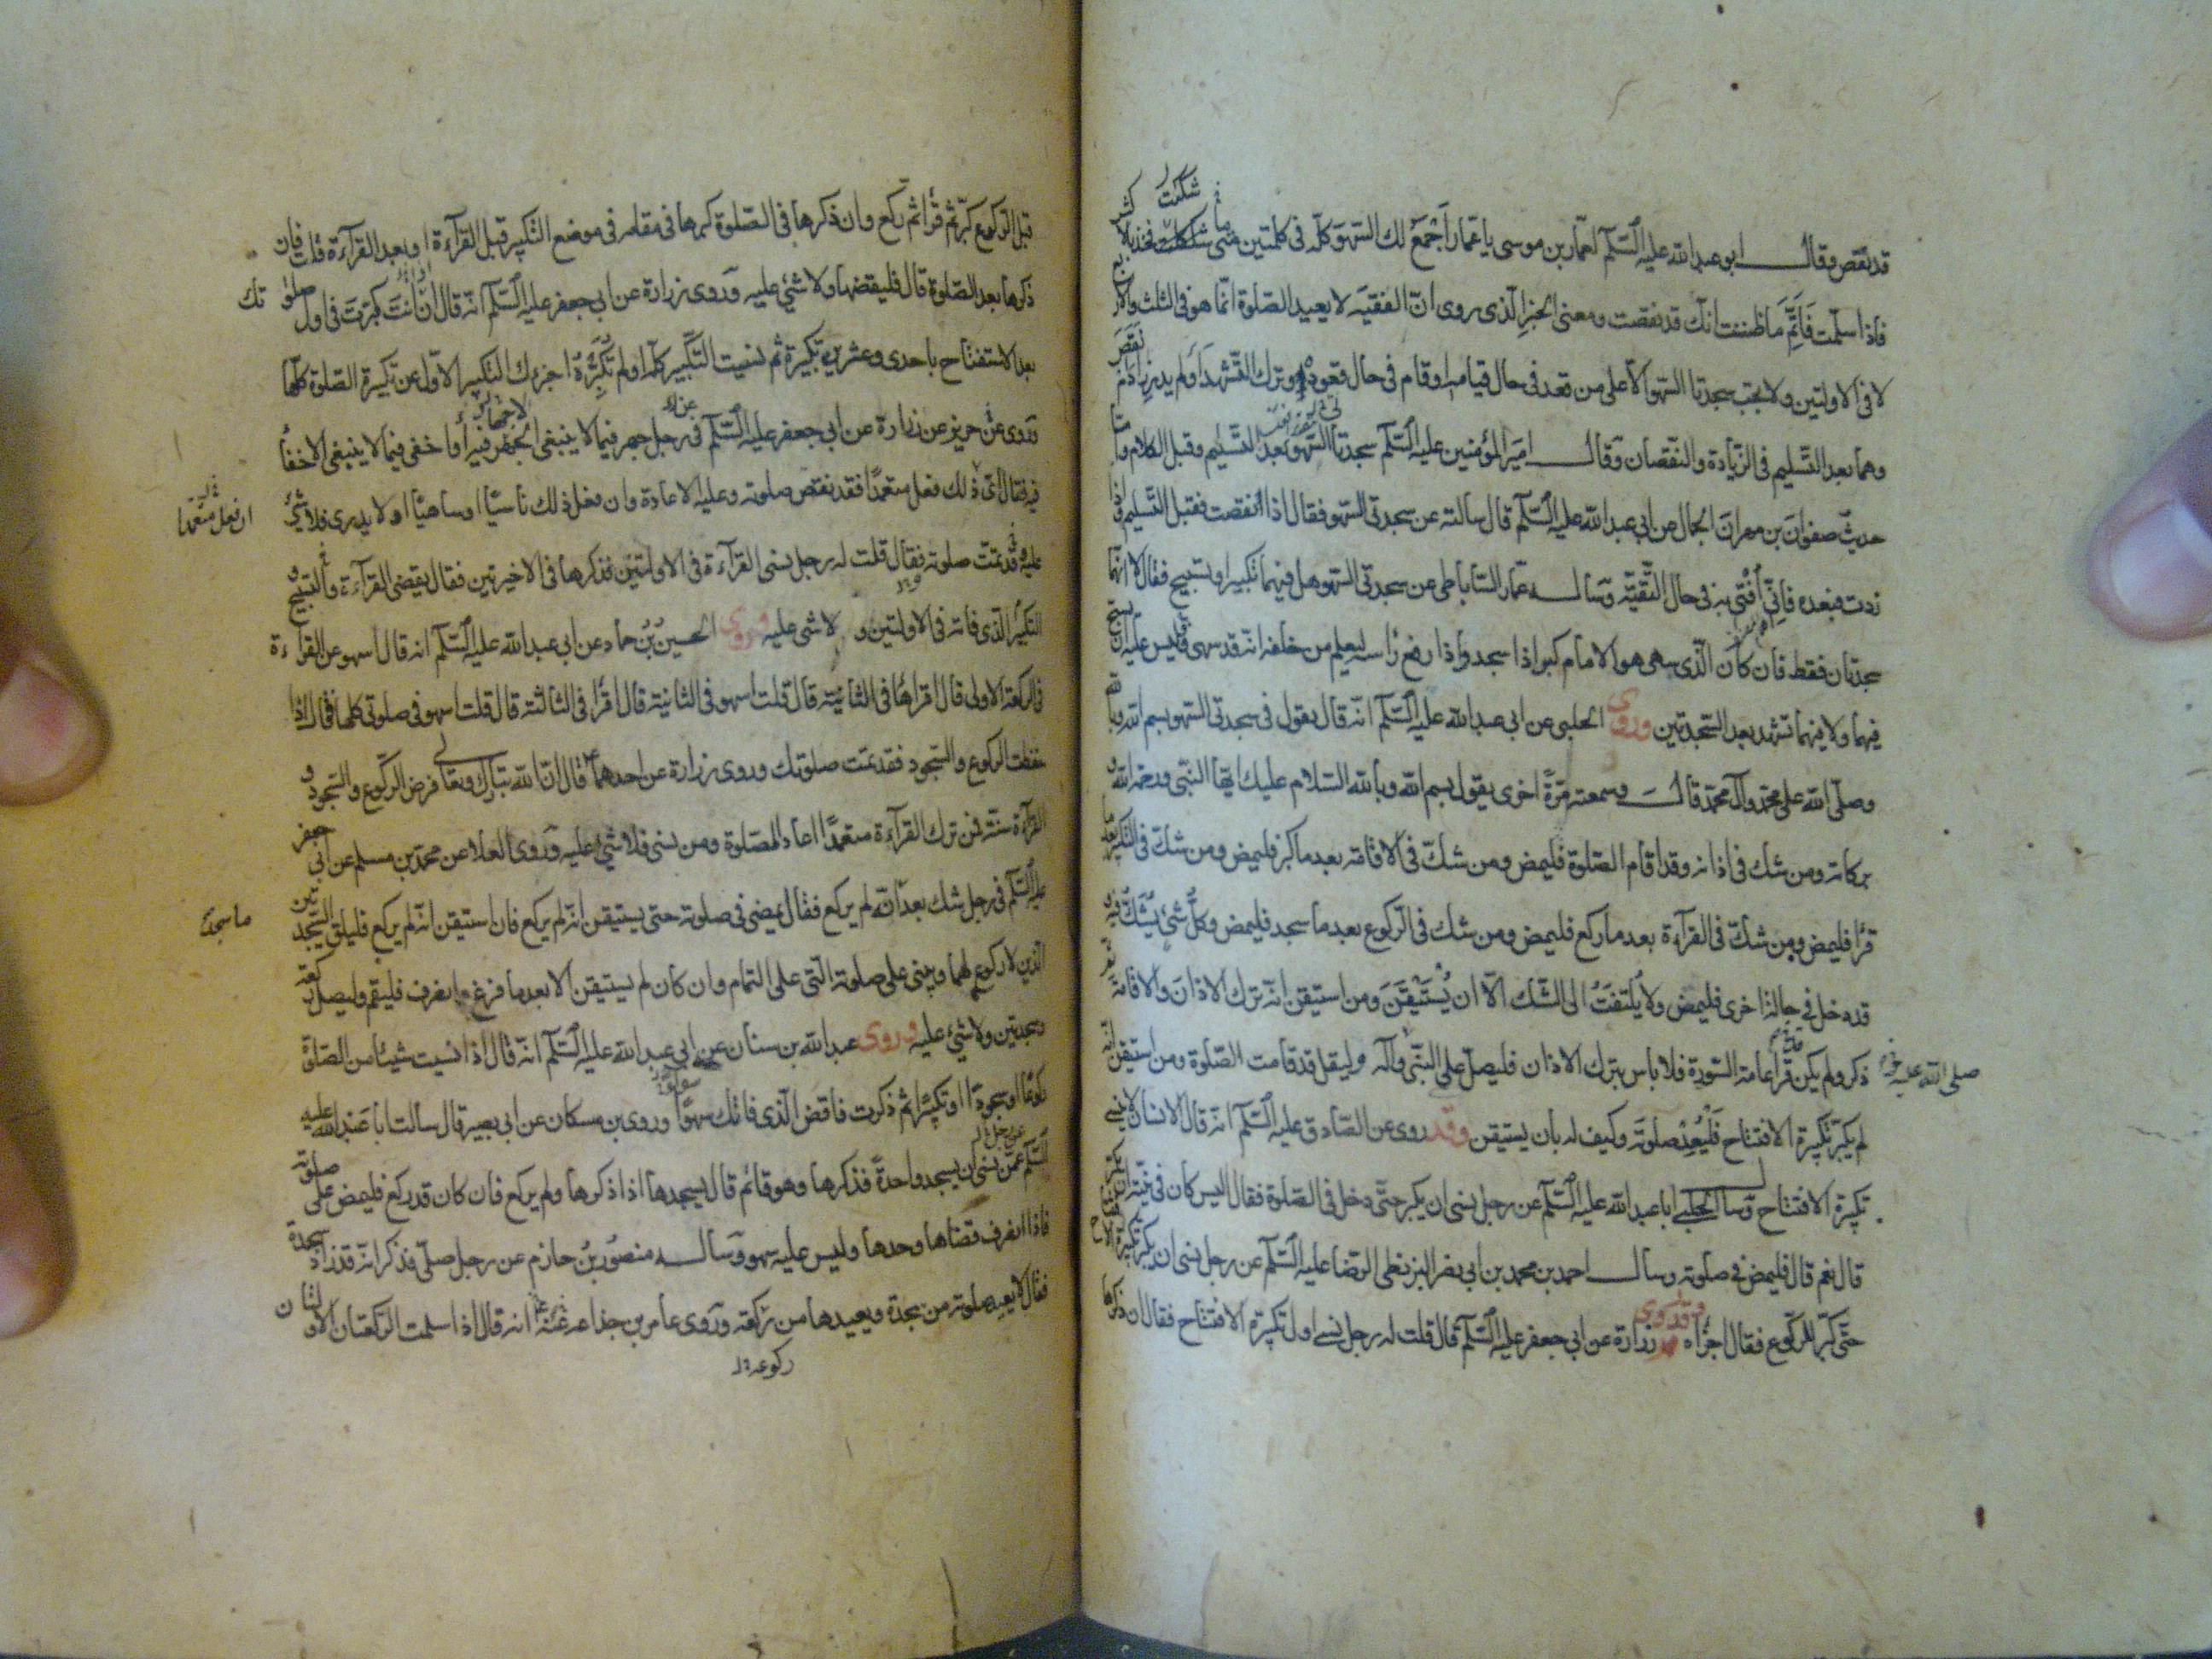 قد نقص وقال ابو عبد الله عليه السّلم لعمّار بن موسى يا عمّار اَجْمَعُ لك السّهوَ كلّه فى كلمتين متى ما شككت فخذ بالاكثر
فاذا سلّمت فَاَتِمَّ مَا ظننت انّك قد نقصت ومعنى الخبر الّذى روى انّ الفقيَه لا يعيد الصّلوة انّما هو فى الثلث والاربع
لا فى الاولتين ولا يجب سجدتا السّهو الّا على من قعد فى حال قيامه او قام فى حال قعوده او ترك التّشهد او لم يدر زاد ام نقص
وهما بعد التّسليم فى الزّيادة والنقصان وقال امير المؤمنين عليه السّلم سجدتا السّهو بعد التّسليم وقبل الكلام وامّا
حديث صفوان بن مهران الجمال عن ابى عبد الله عليه السّلم قال سالته عن سجدتى السّهو فقال اذا نقصت فقبل التّسليم واذا
زدت فبعده فانّى اُفْتى به فى حال التّقيّة وساله عمّار السّاباطى عن سجدتى السّهو هل فيهما تكبير او تسبيح فقال لا انّما
سجدتان فقط فان كان الّذى سهى هو الامام كبر اذا سجد واذا رفع رأسه ليعلم من خلفه انّه قد سهى وليس عليه ان يسبح
فيهما ولا فيهما تشهّد بعد السّجدتين وروى الحلبى عن ابى عبد الله عليه السّلم انّه قال يقول فى سجدتى السّهو بسم الله وبالله
وصلّى الله على محمّد وآل محمّد قال وسمعته مرّةً اخرى يقول بسم الله وبالله السّلام عليك ايّها النّبى ورحمة الله و
بركاته ومن شك فى اذانه وقد اقام الصّلوة فليمض ومن شكّ فى الاقامة بعد ما كبر فليمض ومن شكّ فى التكبير بعد ما
قرأ فليمض ومن شكّ فى القرآءة بعد ما ركع فليمض ومن شك فى الرّكوع بعد ما سجد فليمض وكلُّ شئ يُشَكُّ فيه و
قد دخل فى حالة اخرى فليمض ولا يُلتفَتُ الى الشّك الّا ان يُسْتَيْقَنَ ومن استيقن انّه ترك الاذانَ والاقامة
ذكر ولم يكن قرأ عامة السّورة فلا باس بترك الاذان فليصلّ على النّبى وآله وليقل قد قامت الصّلوة ومن استيقن انّه
صلى الله عليه
لم يكبّر تكبيرة الافتتاح فَلْيُعِدْ صلوتَه وكيف له بان يستيقن وقد روى عن الصّادق عليه السّلم انّه قال الانسان لا ينسى
تكبيرة الافتتاح وسال الحلبى ابا عبد الله عليه السّلم عن رجل نسى ان يكبر حتّى دخل فى الصّلوة فقال اليس كان فى نيّته ان يكبر
قال نعم قال فليمض فى صلوته وسال احمد بن محمد بن ابى نصر البزنطى الرضا عليه السّلم عن رجل نسى ان يكبر تكبيرة الافتتاح
حتّى كبّر للرّكوع فقال اجزأه وقد روى زرارة عن ابى جعفر عليه السّلم قال قلت له رجل نسى اول تكبيرة الافتتاح فقال ان ذكرها
قبل الرّكوع كبّر ثم قرأ ثم ركع وان ذكرها فى الصّلوة كبرها فى مقامه فى موضع التكبير قبل القرآءة او بعد القرآءة قلت فان
ذكرها بعد الصّلوة قال فليقضها ولا شئ عليه وروى زرارة عن ابى جعفر عليه السّلم انّه قال ان انت كبّرتَ فى اول صلوتك
بعد الاستفتاح باحدى وعشرين تكبيرة ثم نسيت التّكبير كلّه او لم تكبّره اجزءك التّكبير الاوّل عن تكبيرة الصّلوة كلّها
وروى حريز عن زرارة عن ابى جعفر عليه السّلم فى رجل جهر فيما لا ينبغى الجهر فيه او اخفى فيما لا ينبغى الاخفاء
فيه فقال اىّ ذلك فعل متعمّدًا فقد نقض صلوته وعليه الاعادة وان فعل ذلك ناسيًا او ساهيًا او لا يدرى فلا شئ
ان فعل متعمّدا
عليه وقد تمّت صلوته فقال قلت له رجل نسى القرآءة فى الاولتين فذكرها فى الاخيرتين فقال يقضى القرآءة والتسبيح و
التكبير الّذى فاته فى الاولتين و لا شى عليه وروى الحسين بن حماد عن ابى عبد الله عليه السّلم انه قال اسهو عن القراءة
فى الركعة الاولى قال اقرأها فى الثانية قال قلت اسهو فى الثانية قال اقرأ فى الثالثة قال قلت اسهو فى صلوتى كلها قال اذا
حفظت الركوع والسّجود فقد تمّت صلوتك وروى زرارة عن احدهما قال انّ الله تبارك وتعالى فرض الرّكوع والسّجود و
القرآءة سنّة فمن ترك القرآءة متعمدًا اعاد الصّلوة ومن نسى فلا شئ عليه وروى العلا عن محمد بن مسلم عن ابى جعفر
عليه السّلم فى رجل شك بعد انّه لم يركع فقال يمضى فى صلوته حتى يستيقن انّه لم يركع فان استيقن انّه لم يركع فليلق السّجدتين
ما سجد
الّذين لا ركوع لهما ويبنى على صلوته الّتى على التمام وان كان لم يستيقن الّا بعد ما فرغ وانصرف فليقم وليصل ركعة
وسجدتين ولا شئ عليه وروى عبد الله بن سنان عن ابى عبد الله عليه السّلم انّه قال اذا نسيت شيئا من الصّلوة
ركوعًا او سجودًا او تكبيرًا ثم ذكرت فاقض الّذى فاتك سهوًا وروى بن مسكان عن ابى بصير قال سألت ابا عبد الله عليه
السّلم عمّن نسى ان يسجد واحدةً فذكرها وهو قائم قال يسجدها اذا ذكرها ولم يركع فان كان قد ركع فليمض على صلوته
فاذا انصرف قضاها وحدها وليس عليه سهو وساله منصور بن حازم عن رجل صلّى فذكر انّه قد زاد سجدة
فقال لا يعيد صلوته من سجدة ويعيدها من ركعة وروى عامر بن جذاعة عنه انه قال اذا سلمت الرّكعتان الاولتان
ركوعه